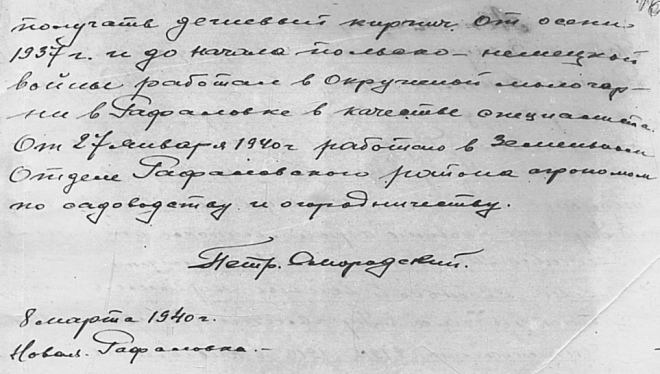 получать дешевый кирпич. От осени
1937 г. и до начала польско-немецкой
войны работал в Окружной молочар-
ни в Рафаловке в качестве специалиста.
От 27 января 1940 г работаю в Земельном
Отделе Рафаловского района агрономом
по садоводству и огородничеству.
Петр. Смородский.
8 марта 1940 г.
Новая. Рафаловка. –